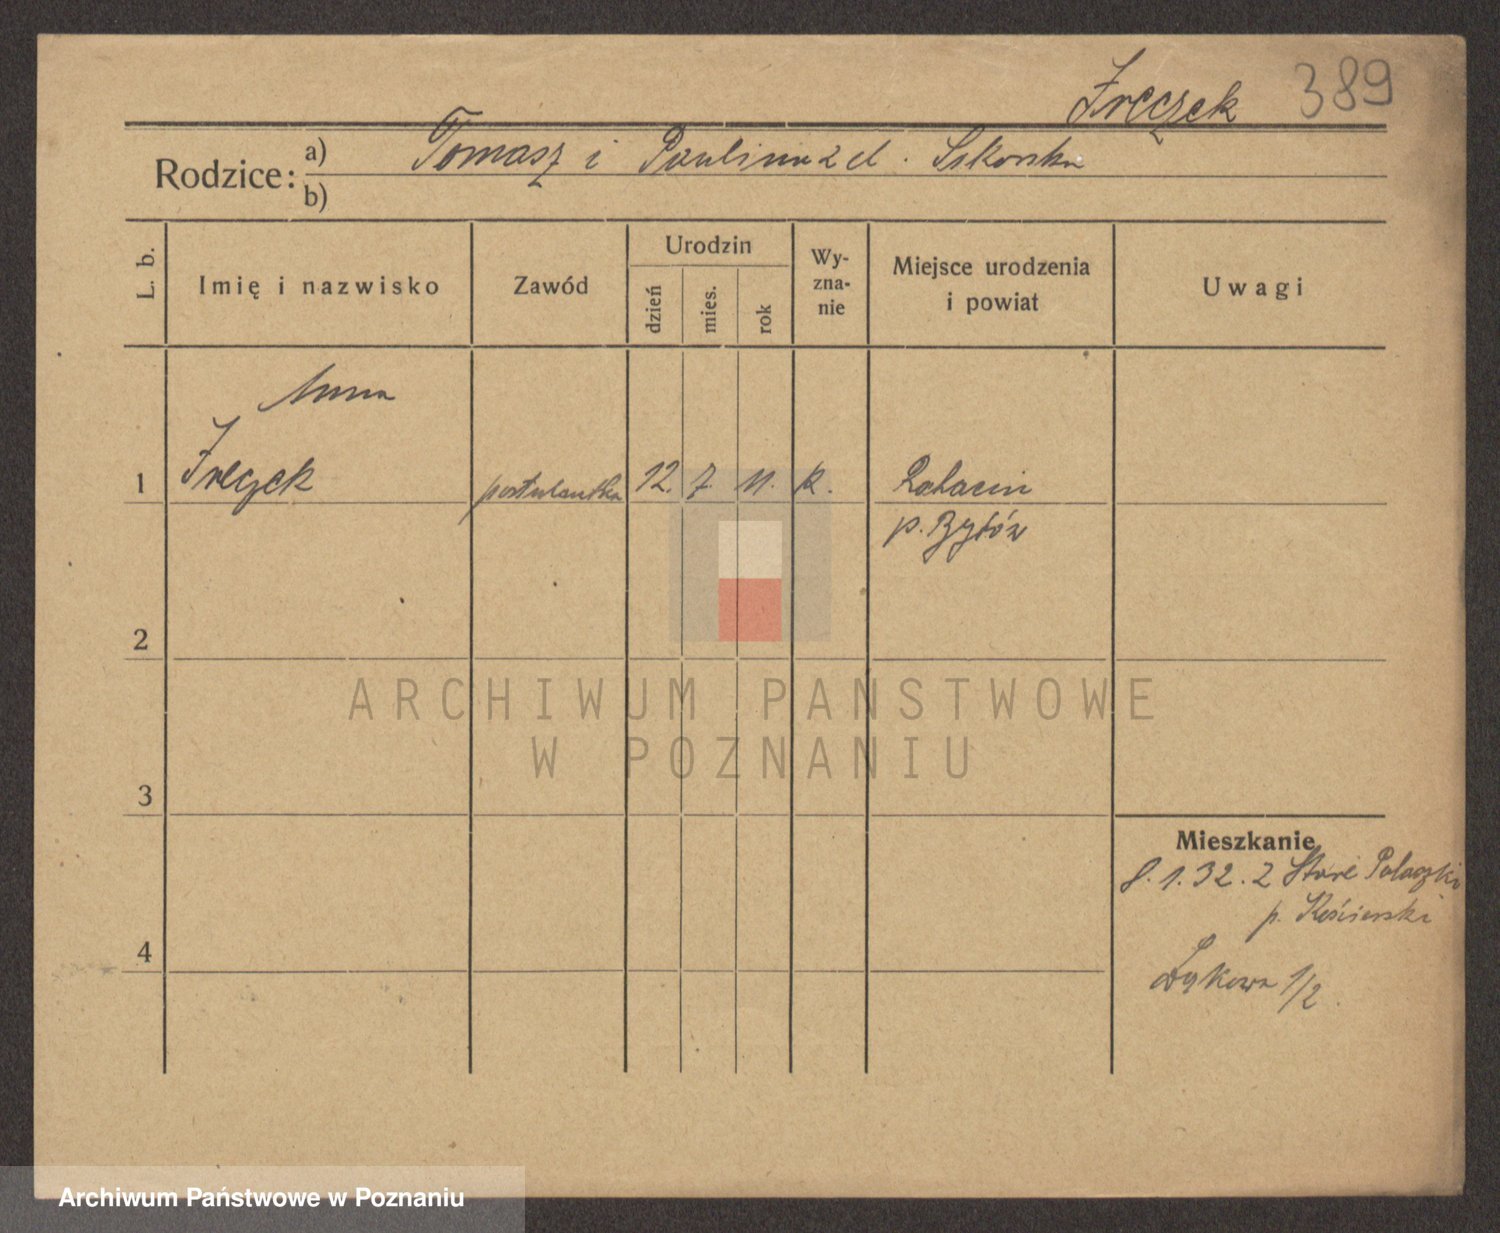 389
Rodzice: a) Tomasz i Paulina z d. Sikorska
b)
L. b.
Imię i nazwisko
Zawód
Urodzin
dzień
mies.
rok
Wy-
zna-
nie
Miejsce urodzenia
i powiat
Uwagi
Anna
1 postulantka 12. 7. 11. k.
p. Bytów
2
3
4
Mieszkanie
8. 1. 32. z Stare Polaszki
p. Kościerski
Łąkowa 1/2.
ARCHIWUM PAŃSTWOWE
W POZNANIU
Archiwum Państwowe w Poznaniu